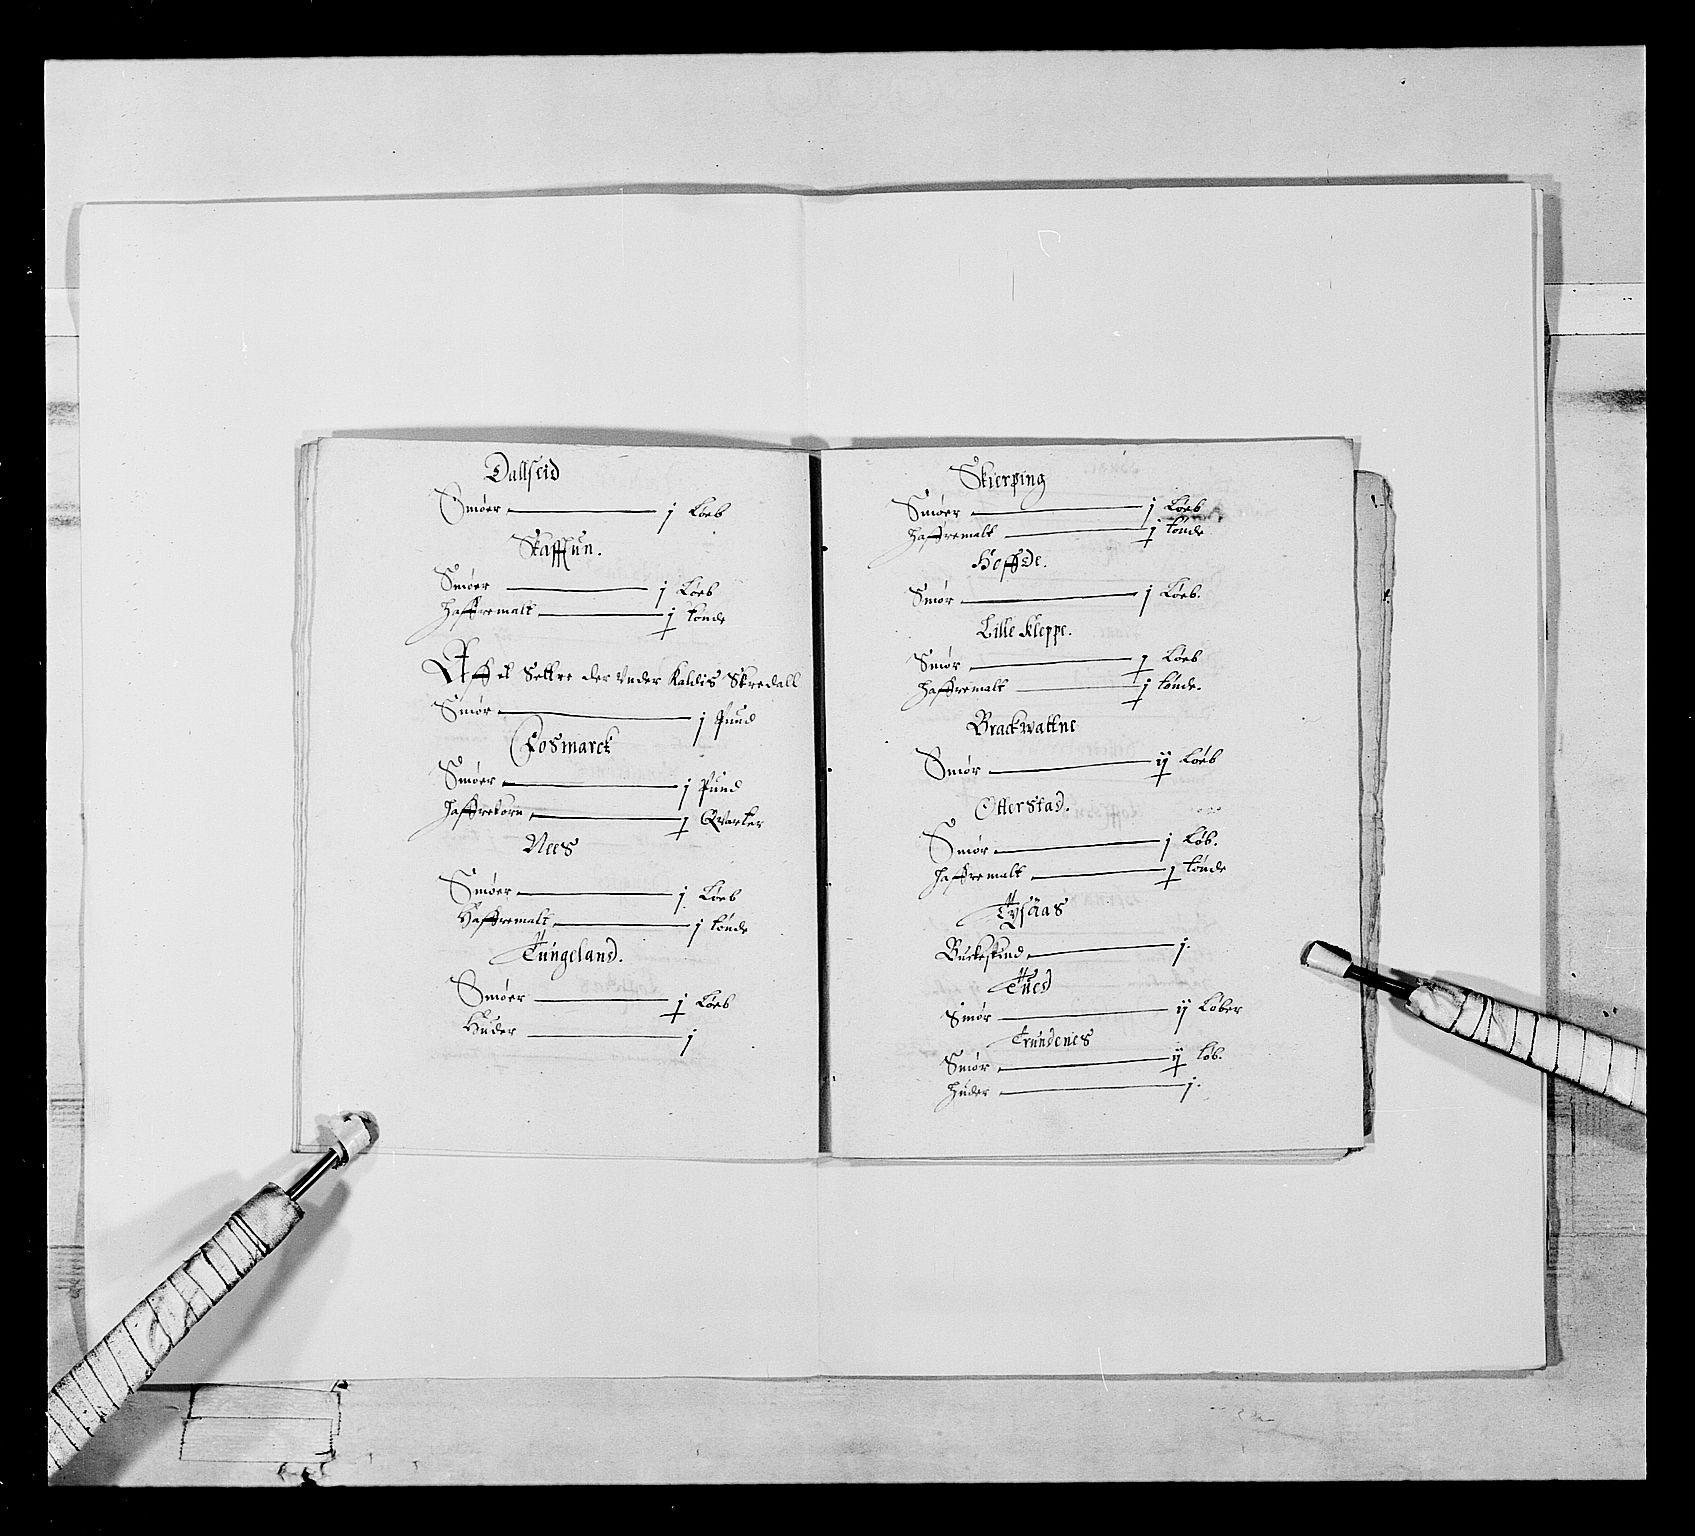 Dallseid
Smøer j Løeb
Skaffun.
Smøer j Løeb
Haffremalt j tønde
Aff et Settre der Vnder Kaldis Skredall
Smør j Pund
Fosmarck
Smøer j Pund
Haffrekorn j Qvarter
Nees
Smøer j Løeb
Haffremalt j tønde
Tungeland.
Smøer j Løeb
Huder j
Skierping
Smøer j Løeb
Haffremalt j tønde
Hoffde.
Smør j Løeb.
Lille Kleppe.
Smør j Løeb
Haffremalt j tønde.
Brackwattne
Smør ij Løeb
Otterstad.
Smør j Løb.
Haffremalt j tønde
Tysaas
Buckeskind j.
Tued
Smør ij Løber
Trundenes
Smør ij løb.
Huder j.